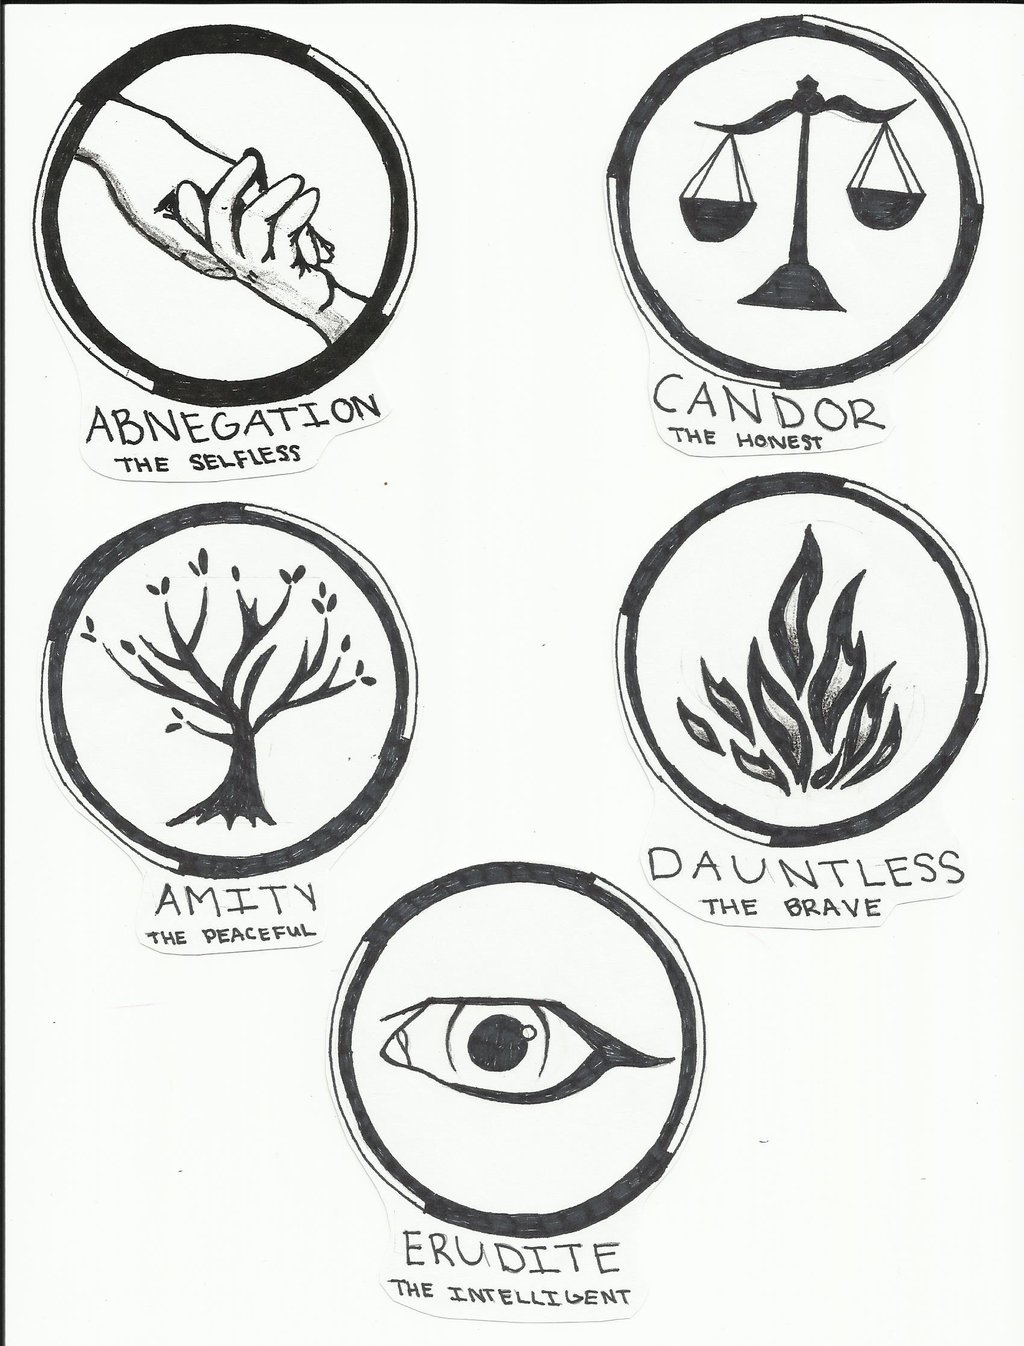 ABNEGATION
THE SELFLESS
CANDOR
THE HONEST
AMITY
THE PEACEFUL
DAUNTLESS
THE BRAVE
ERUDITE
THE INTELLIGENT